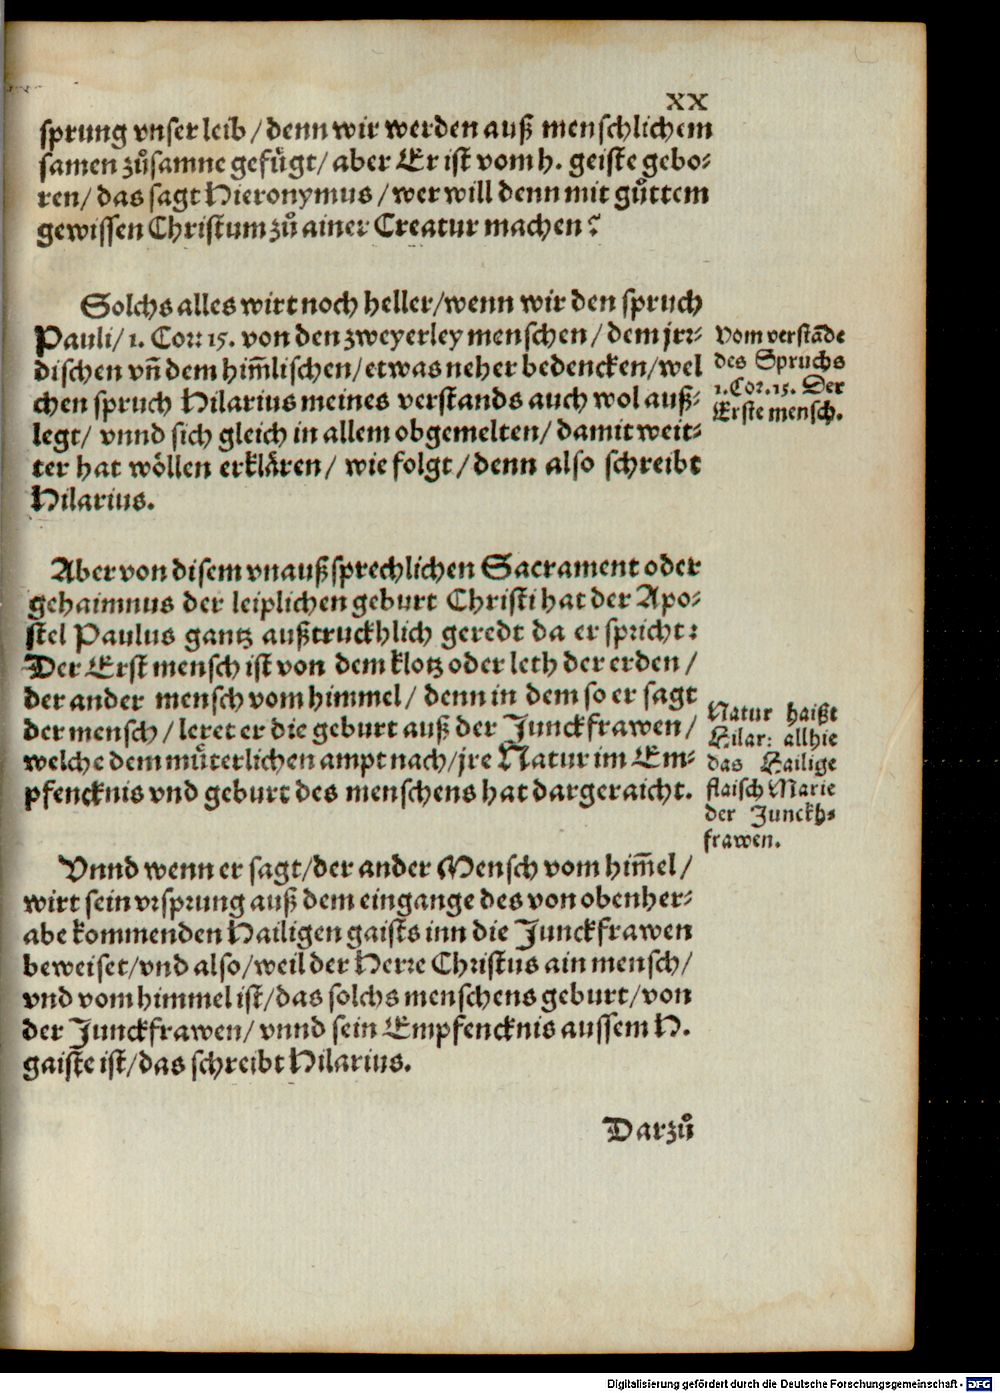 XX
sprung vnser leib / denn wir werden auß menschlichem
samen zůsamne gefügt / aber Er ist vom h. geiste gebo-
ren / das sagt Hieronymus / wer will denn mit gůttem
gewissen Christum zů ainer Creatur machen?
Solchs alles wirt noch heller / wenn wir den spruch
Pauli / 1. Cor: 15. von den zweyerley menschen / dem jrr-
dischen vñ dem him̃lischen / etwas neher bedencken / wel
chen spruch Hilarius meines verstands auch wol auß-
legt / vnnd sich gleich in allem obgemelten / damit weit-
ter hat wöllen erklären / wie folgt / denn also schreibt
Hilarius.
Vom verstãde
des Spruchs
1. Cor. 15. Der
Erste mensch.
Aber von disem vnaußsprechlichen Sacrament oder
gehaimnus der leiplichen geburt Christi hat der Apo-
stel Paulus gantz außtruckhlich geredt da er spricht:
Der Erst mensch ist von dem klotz oder leth der erden /
der ander mensch vom himmel / denn in dem so er sagt
der mensch / leret er die geburt auß der Junckfrawen /
welche dem müterlichen ampt nach / jre Natur im Em-
pfencknis vnd geburt des menschens hat dargeraicht.
Natur haißt
Hilar: allhie
das Hailige
flaisch Marie
der Junckh-
frawen.
Vnnd wenn er sagt / der ander Mensch vom him̃el /
wirt sein vrsprung auß dem eingange des von obenher-
abe kommenden Hailigen gaists inn die Junckfrawen
beweiset / vnd also / weil der Herre Christus ain mensch /
vnd vom himmel ist / das solchs menschens geburt / von
der Junckfrawen / vnnd sein Empfencknis aussem H.
gaiste ist / das schreibt Hilarius.
Darzů
Digitalisierung gefördert durch die Deutsche Forschungsgemeinschaft - DFG